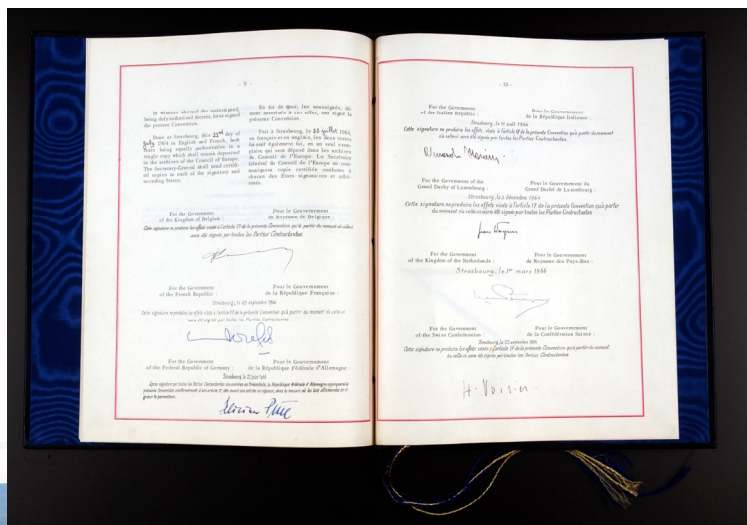 - 9 -
In witness whereof the undersigned,
being duly authorised thereto, have signed
the present Convention.
Done at Strasbourg, this 22nd day of
July 1964 in English and French, both
texts being equally authoritative in a
single copy which shall remain deposited
in the archives of the Council of Europe.
The Secretary-General shall send certifi-
ed copies to each of the signatory and
acceding States.
En foi de quoi, les soussignés, dû-
ment autorisés à cet effet, ont signé la
présente Convention.
Fait à Strasbourg, le 22 juillet 1964,
en français et en anglais, les deux textes
faisant également foi, en un seul exem-
plaire qui sera déposé dans les archives
du Conseil de l'Europe. Le Secrétaire
Général du Conseil de l'Europe en com-
muniquera copie certifiée conforme à
chacun des États signataires et adhé-
rents.
For the Government
of the Kingdom of Belgium :
Pour le Gouvernement
du Royaume de Belgique :
Cette signature ne produira les effets visés à l'article 17 de la présente Convention qu'à partir du moment où celle-ci
aura été signée par toutes les Parties Contractantes
For the Government
of the French Republic :
Pour le Gouvernement
de la République Française :
Strasbourg, le septembre
Cette signature ne produira les effets visés à l'article 17 de la présente Convention qu'à partir du moment où celle-ci
aura été signée par toutes les Parties Contractantes
For the Government
of the Federal Republic of Germany :
Pour le Gouvernement
de la République Fédérale d'Allemagne :
Strasbourg, le 22 juin
Après signature par toutes les Parties Contractantes la République Fédérale d'Allemagne appliquera la
présente Convention
- 10 -
For the Government
of the Italian Republic :
Pour le Gouvernement
de la République Italienne :
Strasbourg, le 11 août 1966
Cette signature ne produira les effets visés à l'article 17 de la présente Convention qu'à partir du moment
où celle-ci aura été signée par toutes les Parties Contractantes.
For the Government of the
Grand Duchy of Luxembourg :
Pour le Gouvernement du
Grand Duché de Luxembourg :
Strasbourg, le 2 décembre 1964
Cette signature ne produira les effets visés à l'article 17 de la présente Convention qu'à partir
du moment où celle-ci aura été signée par toutes les Parties Contractantes
For the Government
of the Kingdom of the Netherlands :
Pour le Gouvernement
du Royaume des Pays-Bas :
Strasbourg, le 1er mars 1966
For the Government
of the Swiss Confederation :
Pour le Gouvernement
de la Confédération Suisse :
Strasbourg, le 22 septembre
Cette signature ne produira les effets visés à l'article 17 de la présente Convention qu'à partir du moment
où celle-ci aura été signée par toutes les Parties Contractantes.
H. Voirier